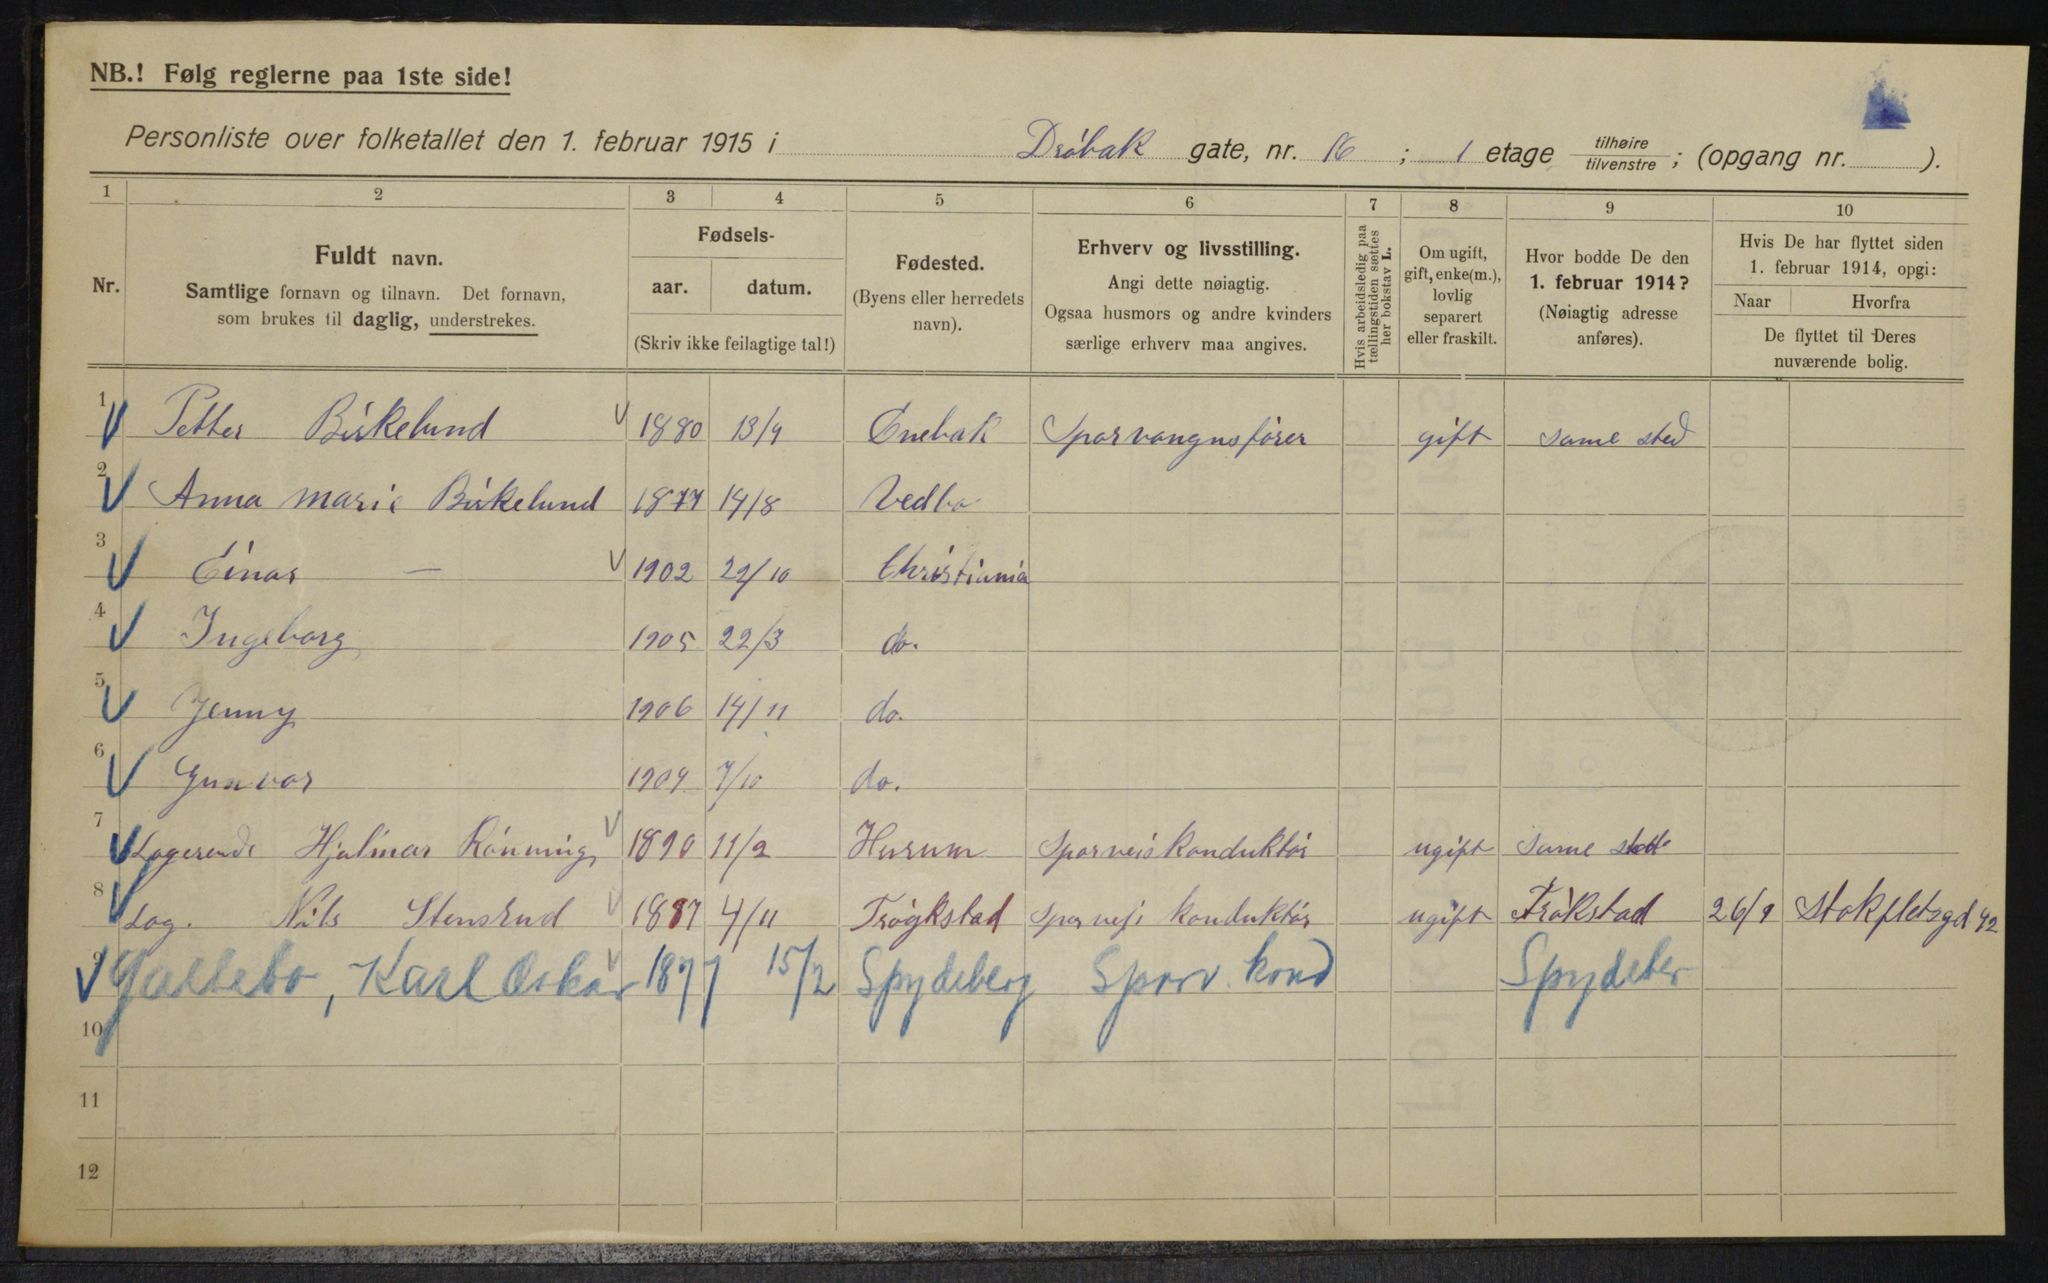 NB.! Følg reglerne paa 1ste side!
Personliste over folketallet den 1. februar 1915 i Drøbak gate, nr. 16 ; 1 etage tilhøire tilvenstre ; (opgang nr. ).
1 2 3 4 5 6 7 8 9 10
Nr.
Fuldt navn.
Samtlige fornavn og tilnavn. Det fornavn,
som brukes til daglig, understrekes.
Fødsels-
aar. datum.
(Skriv ikke feilagtige tal!)
Fødested.
(Byens eller herredets
navn).
Erhverv og livsstilling.
Angi dette nøiagtig.
Ogsaa husmors og andre kvinders
særlige erhverv maa angives.
Hvis arbeidsledig paa
tællingstiden sættes
her bokstav L.
Om ugift,
gift, enke(m.),
lovlig
separert
eller fraskilt.
Hvor bodde De den
1. februar 1914?
(Nøiagtig adresse
anføres).
Hvis De har flyttet siden
1. februar 1914, opgi:
Naar Hvorfra
De flyttet til Deres
nuværende bolig.
1 Petter Birkelund 1880 13/9 Enebak Sporvangnsfører gift same sted
2 Anna Marie Birkelund 1877 14/8 Vedbo
3 Einar — 1902 22/10 Christiania
4 Ingeborg 1905 22/3 do.
5 Jenny 1906 14/11 do.
6 Gunvor 1909 7/10 do.
7 Logerende Hjalmar Rönning 1890 11/2 Hurum Sporveiskonduktör ugift same sted
8 Log. Nils Stensrud 1887 4/11 Trögkstad Sporveis konduktör ugift Trökstad 26/9 Stokfletsgd 42
9 Galtebo, Karl Oskar 1877 15/2 Spydeberg Sporv. kond Spydeber
10
11
12